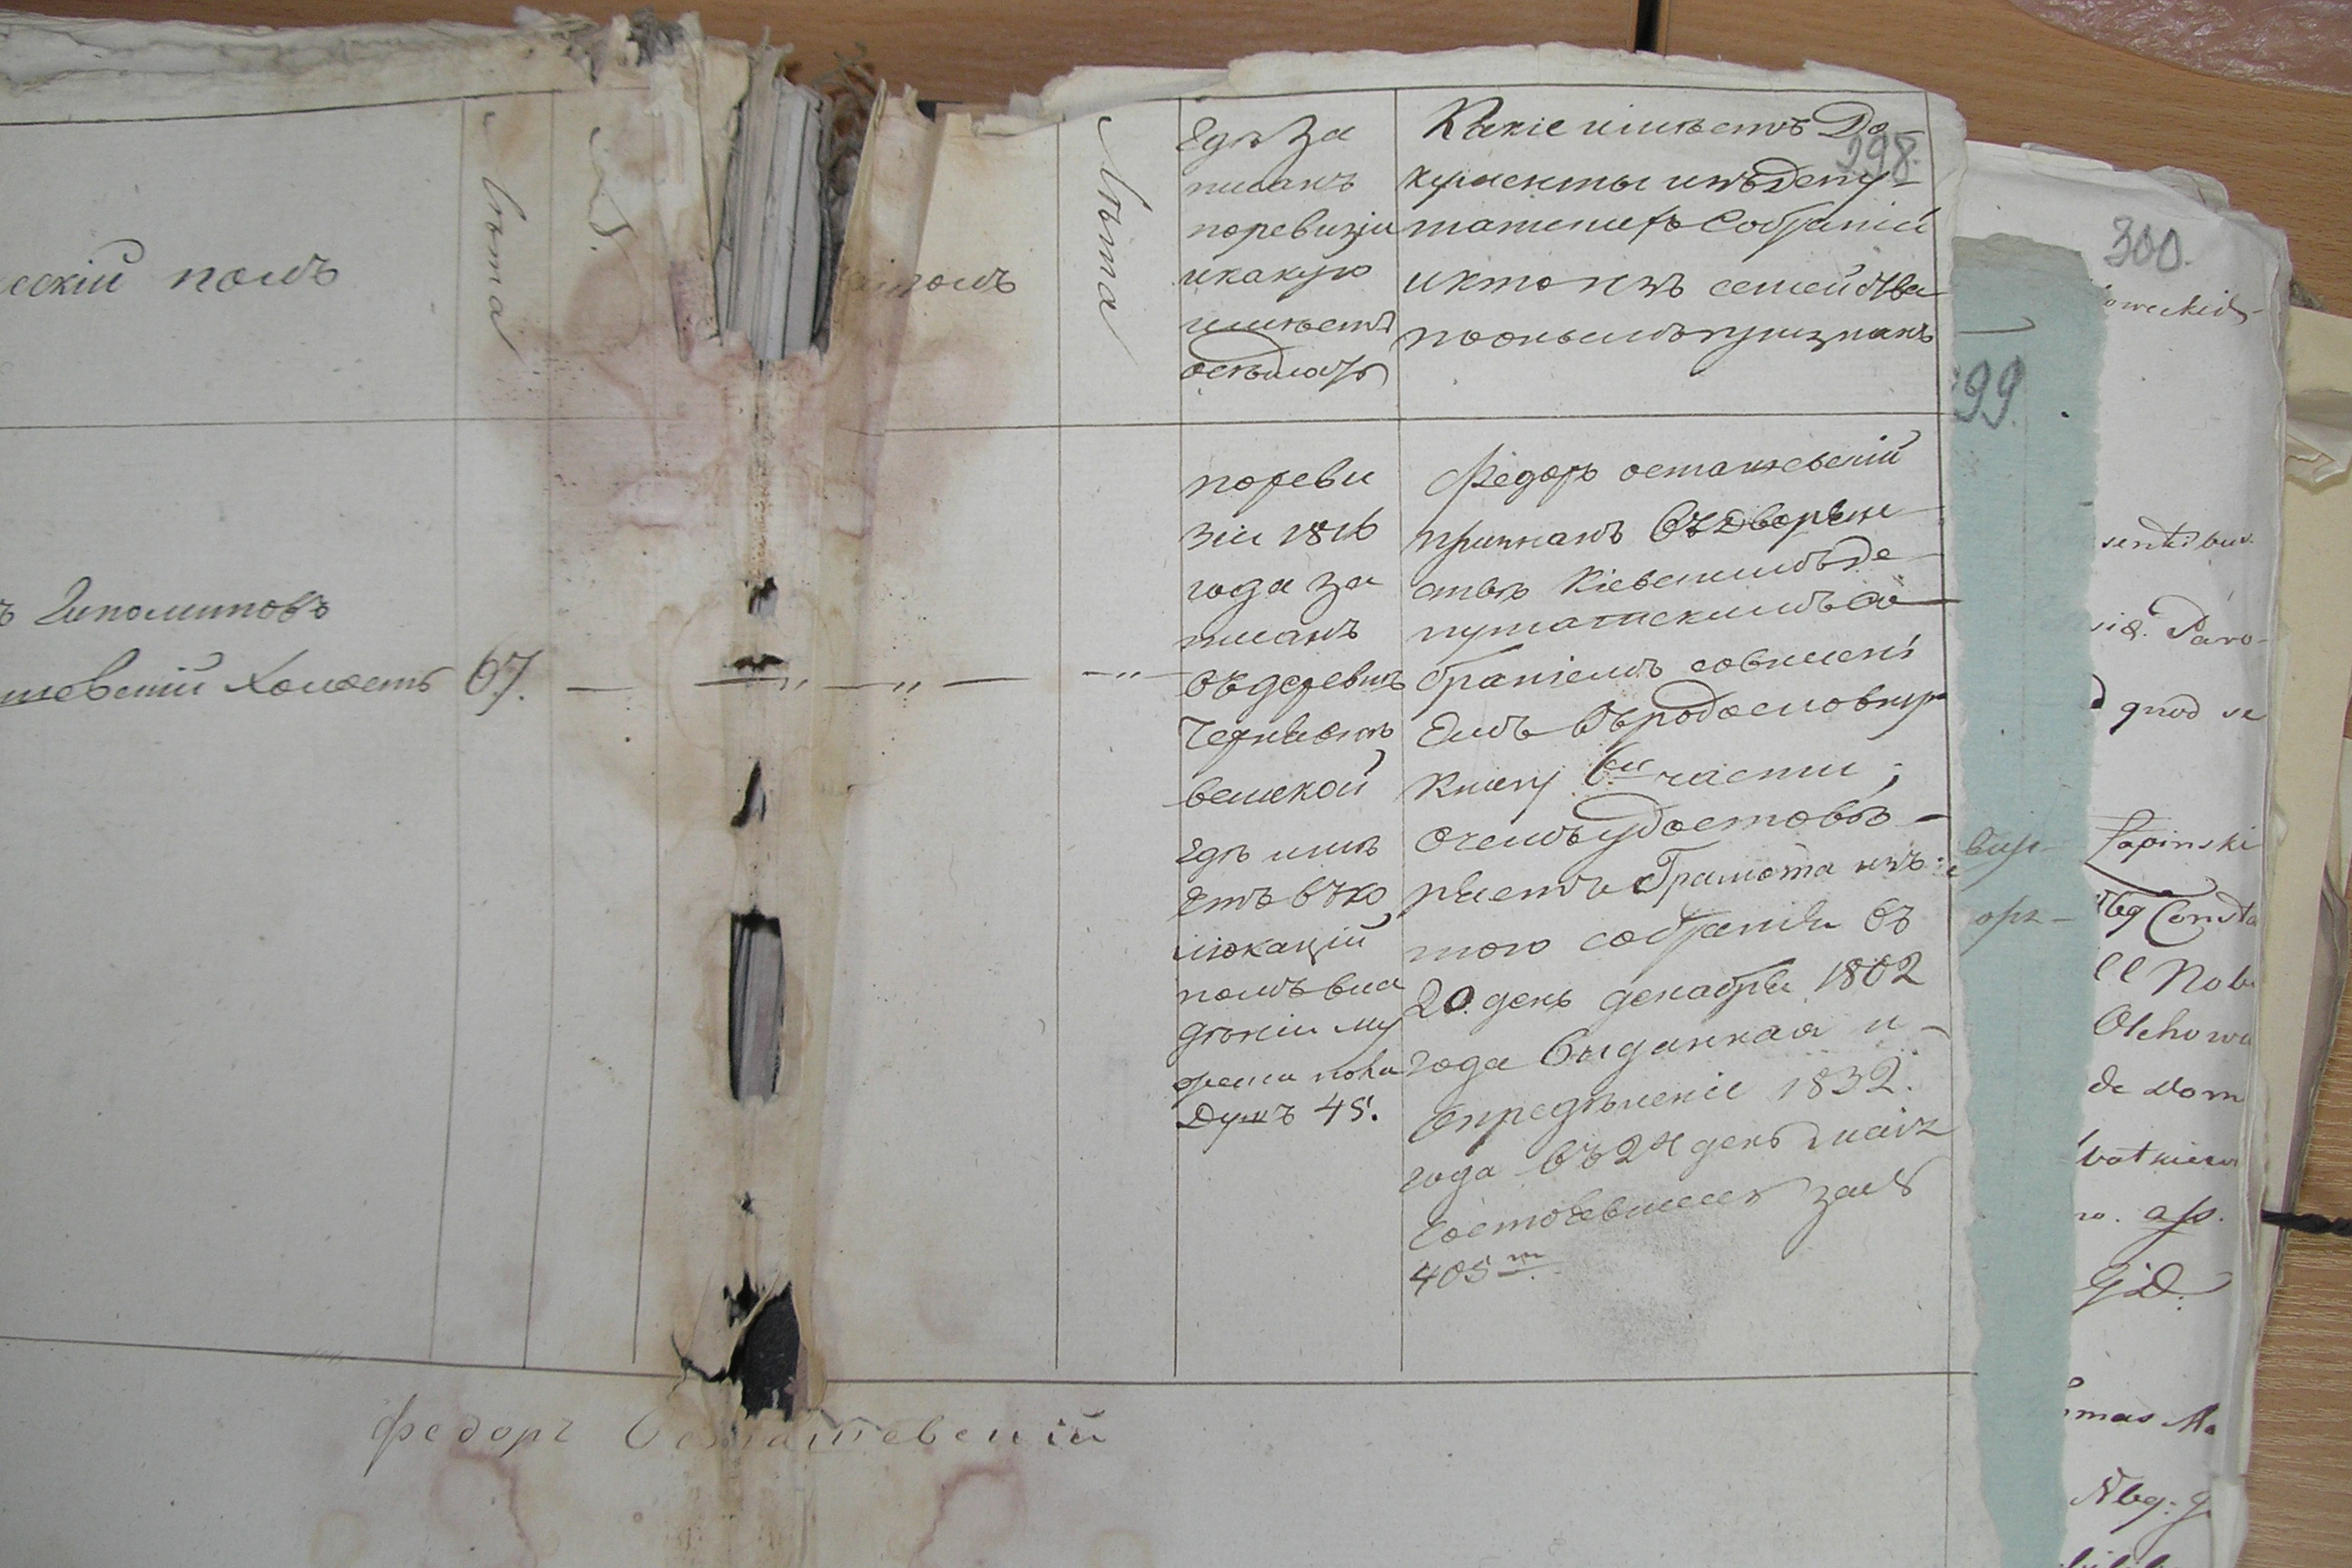 ескій полъ
Лѣта
полъ
Лѣта
Гдѣ за
писанъ
поревизіи
икакую
имѣетъ
осѣдлость
Какіе имѣетъ До-
кументы изъ Депу-
татскихъ Собраній
икто изъ семейства
поонымъ признанъ
298.
300.
99.
ъ Ипомитовъ
шевскій холостъ
67.
пореви
зіи 1816
года за
писанъ
въ деревнѣ
вешкой
гдѣ имѣ
етъ въ ко
люкаціи
полъ вла
дѣніи му
жеска пола
Душъ 45.
Федоръ осташевскій
признанъ въ Дворян-
ствѣ Кіевскимъ Де-
путатскимъ Со-
браніемъ совнесені
емъ въ родословную
книгу 6й части,
очемъ удостовѣ-
ряетъ Грамота изъ
того собранія въ
20. день декабря 1802
года выданная и
опредѣленіе 1832.
года въ 24 день маія
состоявшееся за №
405 м.
Федоръ Осташевскій
sentibus
Paro-
quod se
Łapinski
Nbg Consta
Nob
Olchow
de Dom
G.D.
mas Ma
Nbg: G